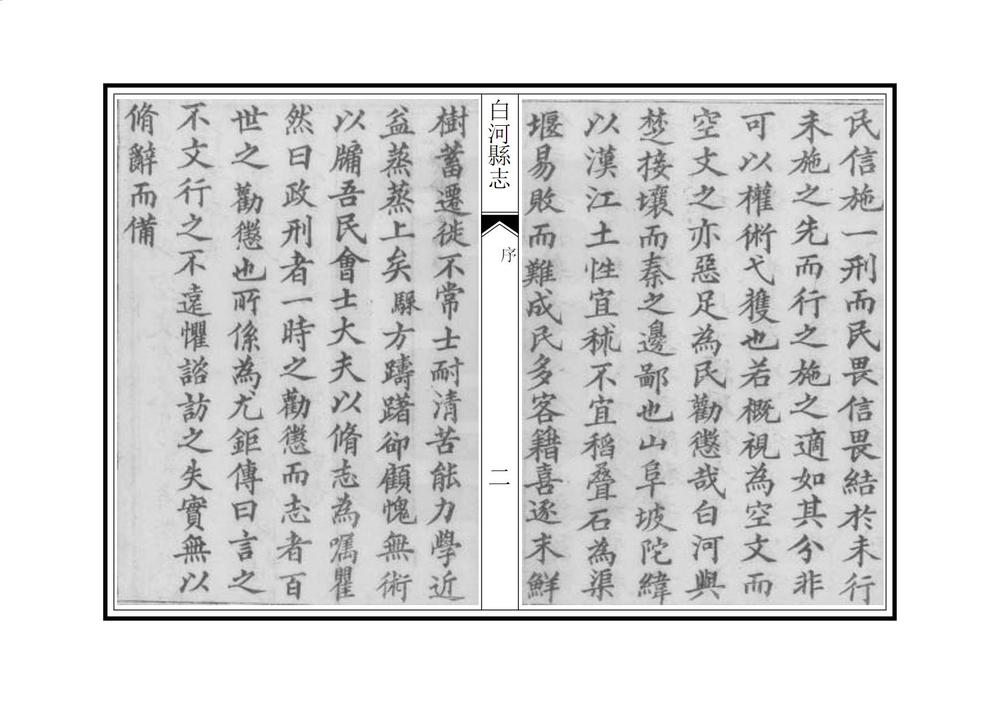 民信施一刑而民畏信畏結於未行
未施之先而行之施之適如其分非
可以權術弋獲也若概視為空文而
空文之亦惡足為民勸懲哉白河與
楚接壤而秦之邊鄙也山阜坡陀緯
以漢江土性宜秫不宜稻疊石為渠
堰易敗而難成民多客籍喜逐末鮮
白河縣志
序
二
樹蓄遷徙不常士耐清苦能力學近
益蒸蒸上矣騄方躊躇卻顧愧無術
以牖吾民會士大夫以脩志為囑瞿
然曰政刑者一時之勸懲而志者百
世之勸懲也所係為尤鉅傳曰言之
不文行之不遠懼諮訪之失實無以
脩辭而備